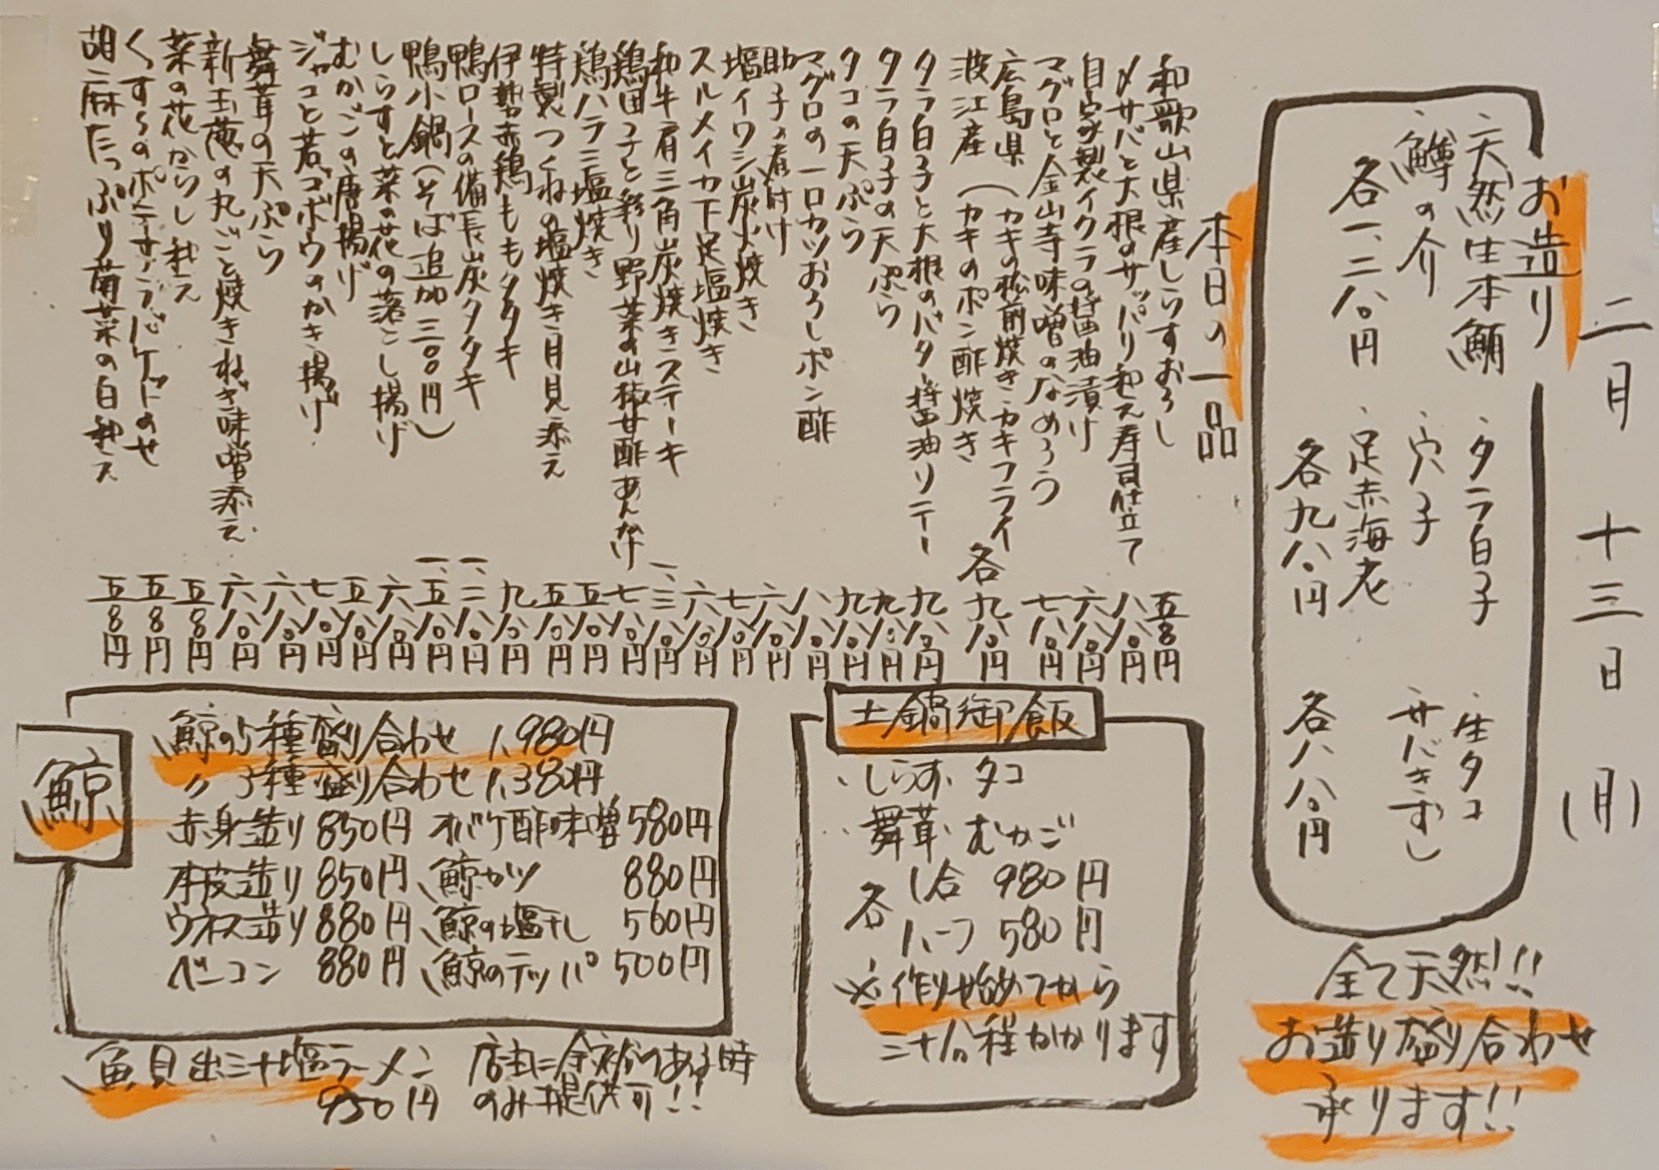 二月十三日(月)
お造り
・天然生本鮪
・鱒の介
各一、二八〇円
・タラ白子
・穴子
・足赤海老
各九八〇円
・生タコ
・サバきずし
各八八〇円
全て天然!!
お造り盛り合わせ
承ります!!
本日の一品
和歌山県産しらすおろし 五八〇円
〆サバと大根のサッパリ和え寿司仕立て 八八〇円
自家製イクラの醤油漬け 六八〇円
マグロと金山寺味噌のなめろう 七八〇円
広島県
波江産
(カキの松前焼き・カキフライ
(カキのポン酢焼き
各九八〇円
タラ白子と大根のバター醤油ソテー 九八〇円
タラ白子の天ぷら 九八〇円
タコの天ぷら 九八〇円
マグロの一口カツおろしポン酢 八八〇円
助子の煮付け 六八〇円
塩イワシ炭火焼き 七八〇円
スルメイカ下足塩焼き 六八〇円
和牛肩三角炭焼きステーキ 一、三八〇円
鶏団子と彩り野菜の山椒甘酢あんかけ 七八〇円
鶏ハラミ塩焼き 五八〇円
特製つくねの塩焼き月見添え 五八〇円
伊勢赤鶏ももタタキ 九八〇円
鴨ロースの備長炭タタキ 一、二八〇円
鴨小鍋(そば追加三〇〇円) 一、五八〇円
しらすと菜の花の落とし揚げ 六八〇円
むかごの唐揚げ 五八〇円
ジャコと若ゴボウのかき揚げ 七八〇円
舞茸の天ぷら 六八〇円
新玉葱の丸ごと焼きねぎ味噌添え 六八〇円
菜の花からし和え 五八〇円
くずしのポテサラ・バケットのせ 五八〇円
胡麻たっぷり菊菜の白和え 五八〇円
土鍋御飯
・しらす・タコ
・舞茸・むかご
各
1合 980円
ハーフ 580円
※作り始めてから
三十分程かかります
鯨
鯨の5種盛り合わせ 1,980円
〃 3種盛り合わせ 1,380円
赤身造り 850円 オバケ酢味噌 580円
本皮造り 850円 鯨カツ 880円
ウネス造り 880円 鯨の塩干し 560円
ベーコン 880円 鯨のテッパ 500円
魚貝出汁塩ラーメン
950円
店主に余裕のある時
のみ提供可!!